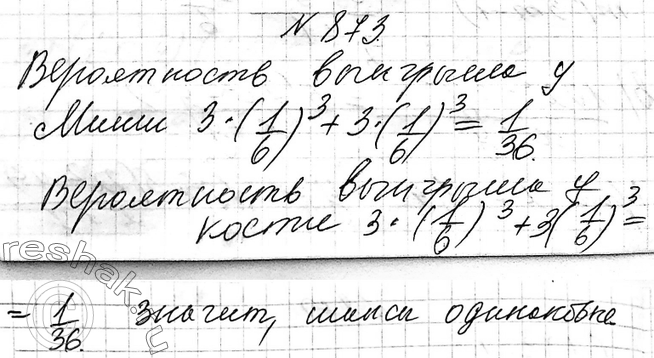 N 873.
Вероятность выигрыша у
Миши 3·(1/6)^3+3·(1/6)^3=1/36.
Вероятность выигрыша у
Кости 3·(1/6)^3+3(1/6)^3=
=1/36. Значит, шансы одинаковые
reshak.ru